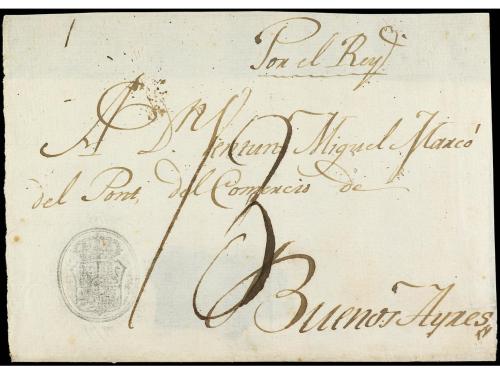 Por el Rey
A Dn Ventura Miguel Marcó
del Pont, del Comercio de
Buenos Ayres